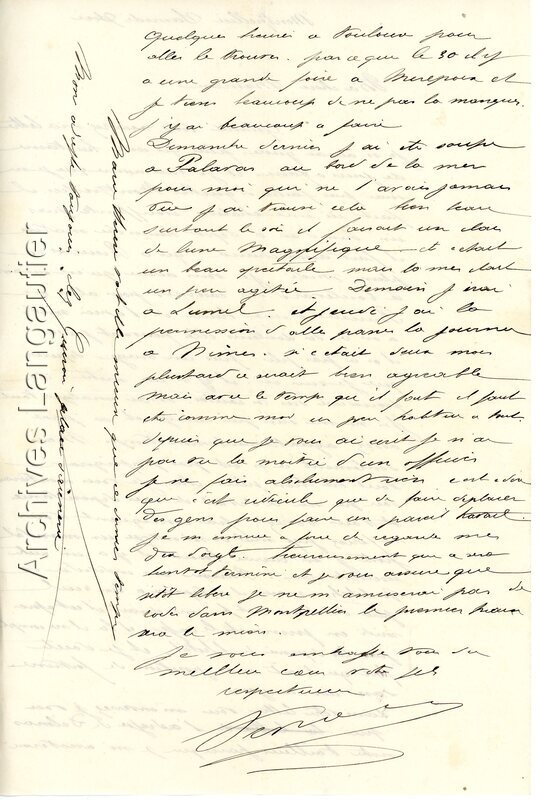 quelques heures a Toulouse pour
aller le trouver. parceque le 30 il y
a une grande foire a Mirepoix et
je tiens beaucoup de ne pas la manquer
j'y ai beaucoup a faire
Demanche dernier j'ai ete souper
a Palavas au bord de la mer
pour moi qui ne l'avais jamais
vue j'ai trouvé cela bien beau
surtout le soir il faisait un clair
de lune Magnifique et c'etait
un beau spectacle mais la mer etait
un peu agitée Demain j'irai
a Lunel. et jeudi j'ai la
permission d'aller passer la journee
a Nimes. si c'etait deux mois
plustard ce serait bien agreable
mais avec le temps qu'il fait il faut
etre comme moi un peu habitue a tout.
depuis que je vous ai ecrit je n'ai
pas vu la moitie d'un officier
je ne fais absolument rien c'est a dire
que c'est ridicule que de faire deplacer
des gens pour faire un pareil travail.
je m'ennuie a force de regarder mes
dix doigts. heureusement que ce sera
bientot terminé et je vous assure que
sitôt libre je ne m'amuserai pas de
roder dans Montpellier le premier
sera le mien.
Je vous embrasse tous du
meilleur cœur votre fils
respectueux
Mon adresse toujours chez
que ce
Archives Langautier